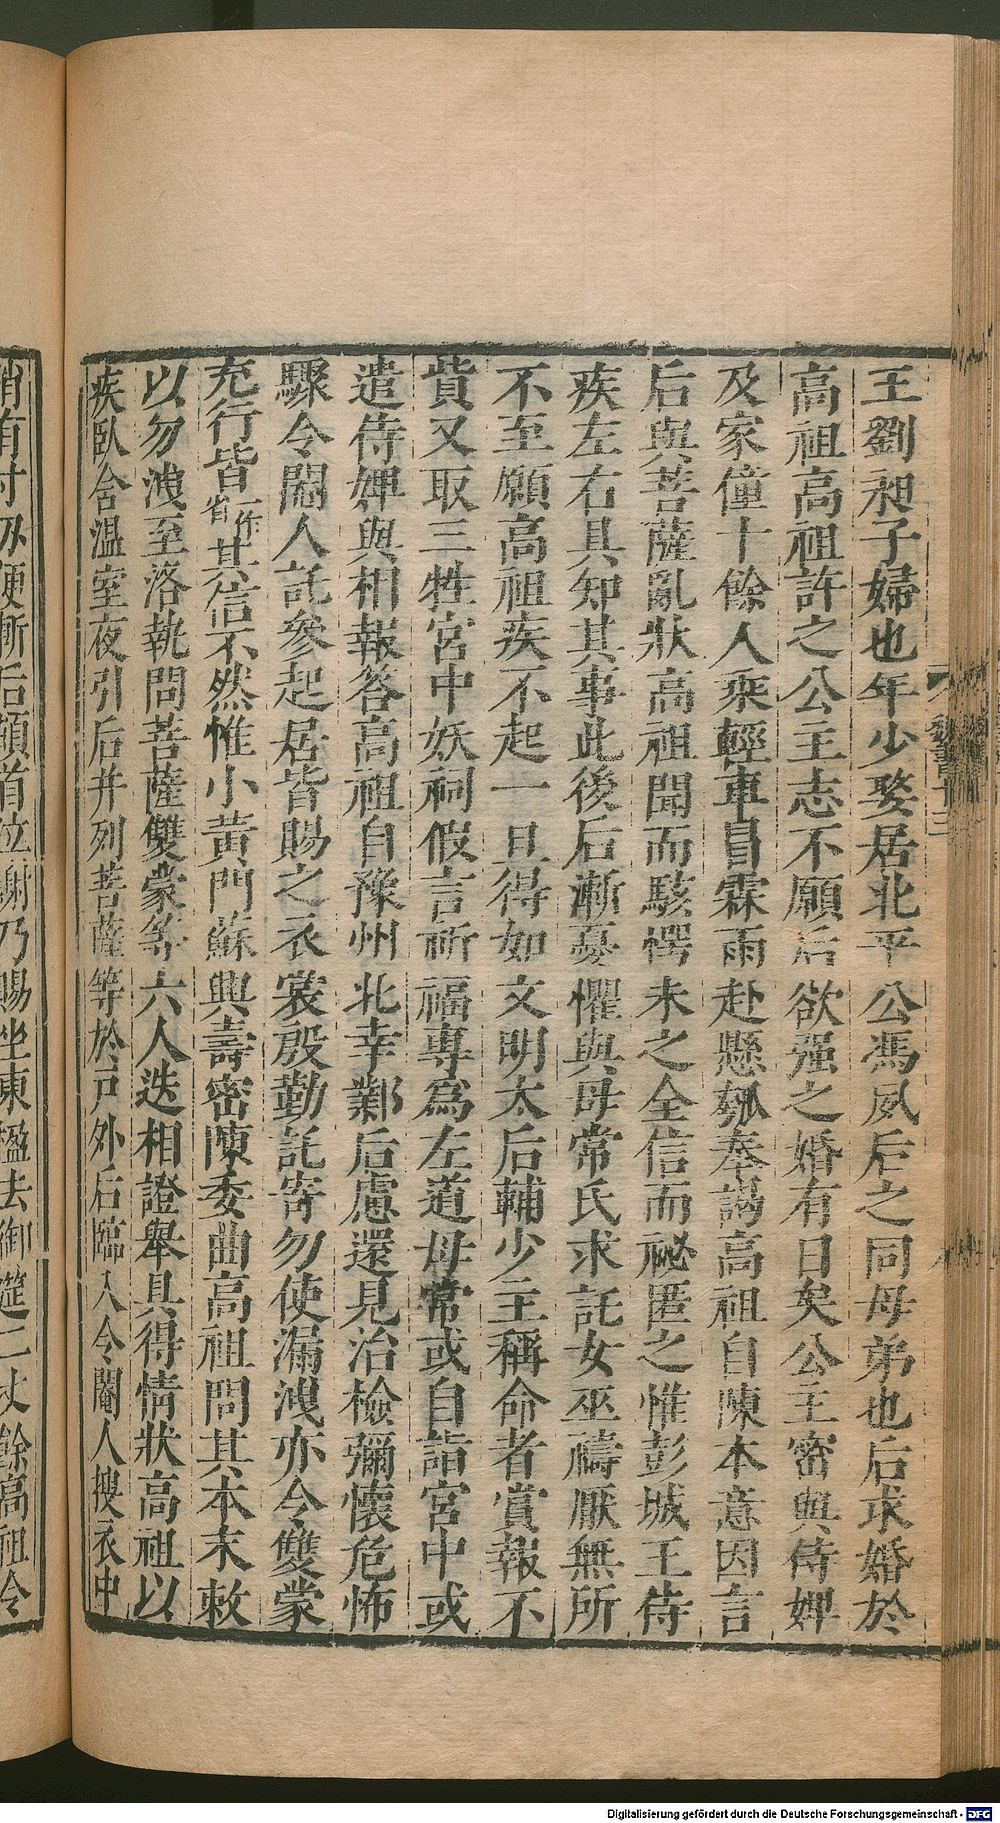 王劉昶子婦也年少嫠居北平公馮夙后之同母弟也后求婚於
高祖高祖許之公主志不願后欲强之婚有日矣公主密與侍婢
及家僮十餘人乘輕車冒霖雨赴懸瓠奉謁高祖自陳本意因言
后與菩薩亂狀高祖聞而駭愕未之全信而祕匿之惟彭城王侍
疾左右具知其事此後后漸憂懼與母常氏求託女巫禱厭無所
不至願高祖疾不起一旦得如文明太后輔少主稱命者賞報不
貲又取三牲宮中妖祠假言祈福專爲左道母常或自詣宮中或
遣侍婢與相報答高祖自豫州北幸鄴后慮還見治檢彌懷危怖
驟令閹人託參起居皆賜之衣裳殷勤託寄勿使漏洩亦令雙蒙
充行皆一作省其信不然惟小黃門蘇興壽密陳委曲高祖問其本末敕
以勿洩至洛執問菩薩雙蒙等六人迭相證舉具得情狀高祖以
疾臥含溫室夜引后并列菩薩等於戶外后臨入令閹人搜衣中
稍有寸刃便斬后頓首泣謝乃賜坐東楹去御筵二丈餘高祖令
魏書十三
Digitalisierung gefördert durch die Deutsche Forschungsgemeinschaft - DFG